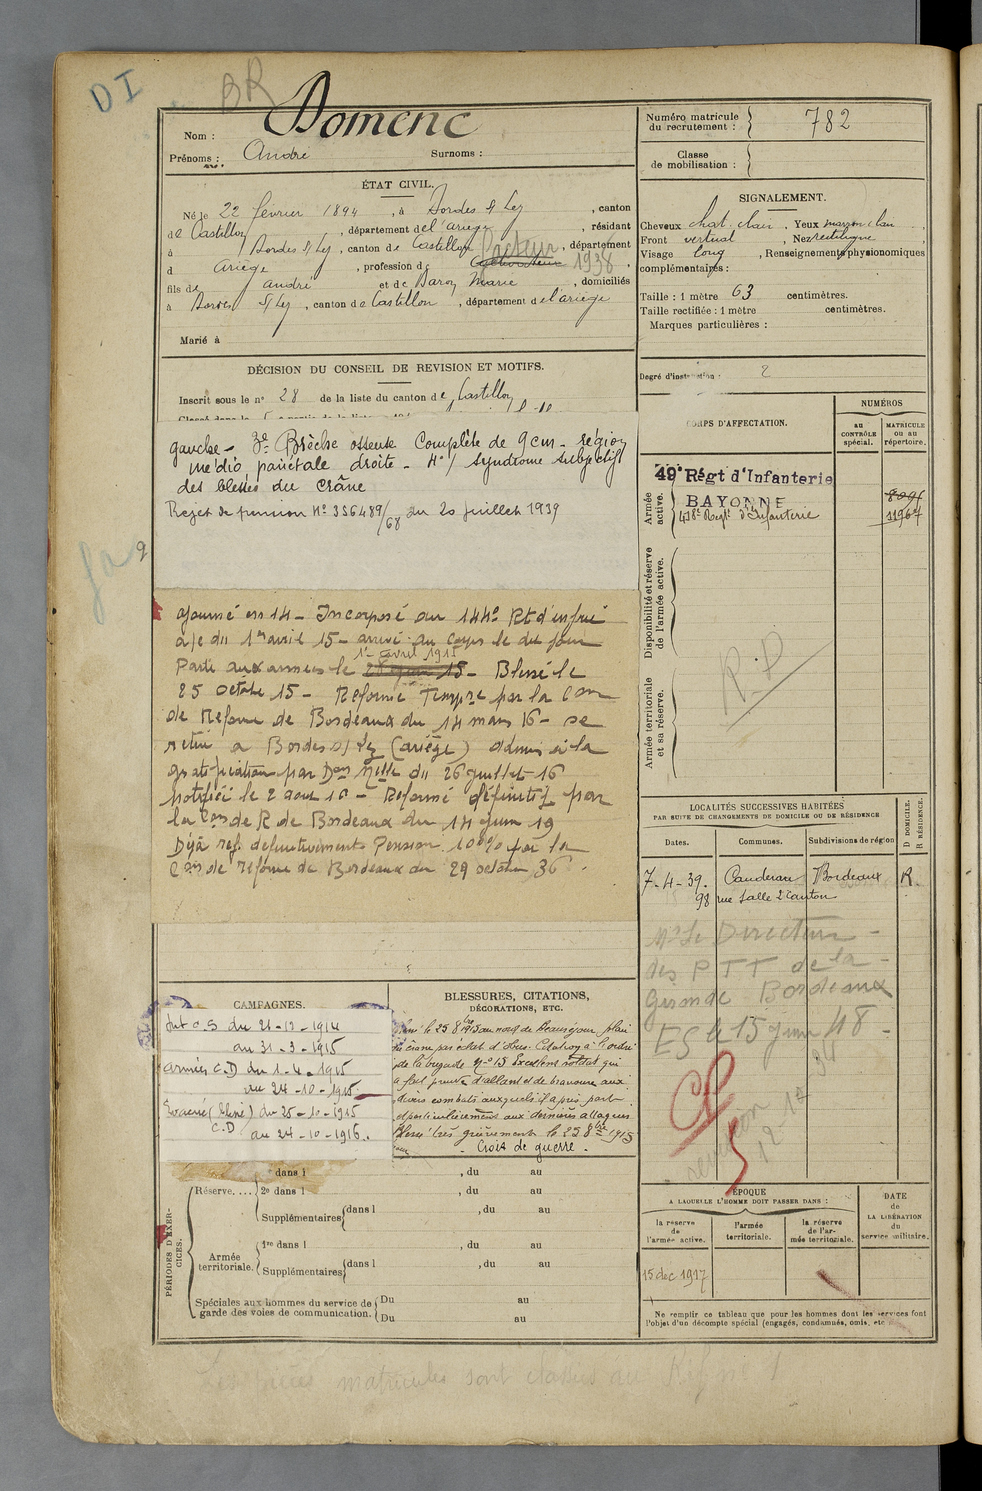 DI
BR
Nom : Domenc
Prénoms : André Surnoms :
ÉTAT CIVIL.
Né le 22 février 1894, à Bordes s/ Lez, canton
de Castillon, département de l'ariège, résidant
à Bordes s/ Lez, canton de Castillon, département
d Ariège, profession de Cultivateur Facteur 1938,
fils de André et de Baroy Marie, domiciliés
à Bordes s/ Lez, canton de Castillon, département de l'ariège
Marié à
DÉCISION DU CONSEIL DE REVISION ET MOTIFS.
Inscrit sous le n° 28 de la liste du canton de Castillon
gauche - 3° Brèche osseuse Complète de 9 cm - région
médio pariétale droite - 4°/ syndrome subjectif
des blessés du crâne
Rejet de pension N° 356489/68 du 20 juillet 1939
ajourné en 14 - Incorporé au 144e Rt d'infrie
à/c du 1er avril 15 - arrivé au corps le dit jour
1er avril 1915
Parti aux armées le 15 - Blessé le
25 octobre 15 - Réformé Tempre par la Con
de Réforme de Bordeaux du 14 mars 16 - se
retire à Bordes s/ Lez (ariège) admis à la
gratification par Don Melle du 26 juillet 16
notifiée le 2 aout 16 - Réformé définitif par
la Con de R de Bordeaux du 14 juin 19
Déjà réf. définitivement Pension 100% par la
Con de réforme de Bordeaux du 29 octobre 36.
CAMPAGNES.
Int C.S du 21-12-1914
au 31-3-1915
armées C.D du 1-4-1915
au 24-10-1915
Evacué (blessé) du 25-10-1915
C.D au 24-10-1916.
BLESSURES, CITATIONS,
DÉCORATIONS, ETC.
Blessé le 25 8bre 1915 au nord de Beauséjour plaie
du crâne par éclat d'obus. Citation à l'ordre
de la brigade n° 15 Excellent soldat qui
a fait preuve d'allant et de bravoure aux
divers combats auxquels il a pris part
et particulièrement aux dernières attaques
Blessé très grièvement le 25 8bre 1915
- Croix de guerre -
PÉRIODES D'EXERCICES.
dans l , du au
Réserve.... 2e dans l , du au
Supplémentaires dans l , du au
Armée territoriale. 1re dans l , du au
Supplémentaires dans l , du au
Spéciales aux hommes du service de garde des voies de communication. Du au
Du au
Numéro matricule du recrutement : 782
Classe de mobilisation :
SIGNALEMENT.
Cheveux chat. clair, Yeux marron clair,
Front vertical, Nez rectiligne,
Visage long, Renseignements physionomiques
complémentaires :
Taille : 1 mètre 63 centimètres.
Taille rectifiée : 1 mètre centimètres.
Marques particulières :
Degré d'instruction : 2
CORPS D'AFFECTATION.
NUMÉROS
au CONTRÔLE spécial.
MATRICULE ou au répertoire.
Armée active.
49e Régt d'Infanterie
BAYONNE
11967
Disponibilité et réserve de l'armée active.
R.D
Armée territoriale et sa réserve.
LOCALITÉS SUCCESSIVES HABITÉES
PAR SUITE DE CHANGEMENTS DE DOMICILE OU DE RÉSIDENCE
Dates. Communes. Subdivisions de région
D DOMICILE. R RÉSIDENCE.
7-4-39. Caudéran Bordeaux R.
98 rue Salle 2e Canton
Mr Le Directeur
des P T T de la
Gironde Bordeaux
ES le 15 juin 48
ÉPOQUE
A LAQUELLE L'HOMME DOIT PASSER DANS :
la réserve de l'armée active.
l'armée territoriale.
la réserve de l'armée territoriale.
DATE DE LA LIBÉRATION du service militaire.
15 dec 1917
Ne remplir ce tableau que pour les hommes dont les services font
l'objet d'un décompte spécial (engagés, condamnés, omis, etc
Les pièces matricules sont classées au